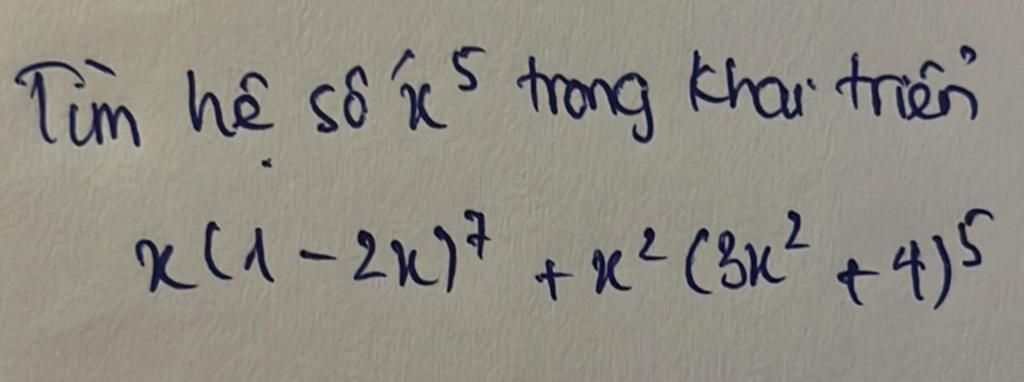 Tìm hệ số x^5 trong khai triển
x(1-2x)^7 + x^2(3x^2 + 4)^5